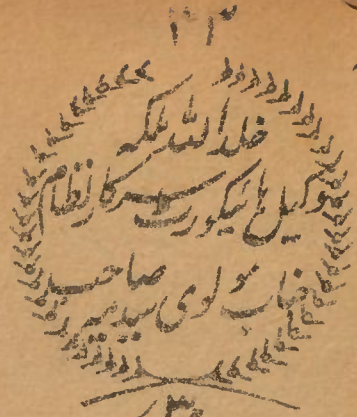 خلد اللہ ملکہ
وکیل ہائیکورٹ سرکار نظام
جناب مولوی سید
صاحب